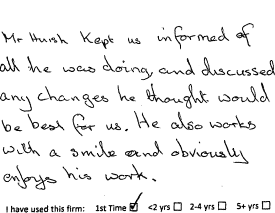 Mr Huish Kept us informed of
all he was doing, and discussed
any changes he thought would
be best for us. He also works
with a smile and obviously
enjoys his work.
I have used this firm: 1st Time ☑ <2 yrs ☐ 2-4 yrs ☐ 5+ yrs ☐